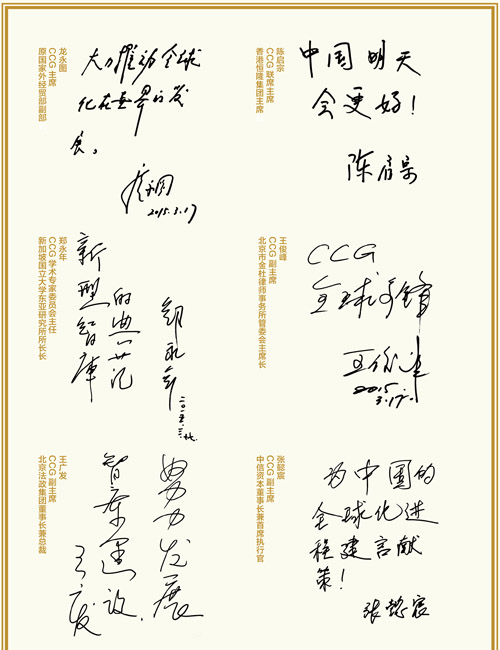 龙永图
CCG 主席
原国家外经贸部副部
大力推动全球
化在世界的发
展。
2015.3.17
陈启宗
CCG 联席主席
香港恒隆集团主席
中国明天
会更好！
陈启宗
郑永年
CCG 学术专家委员会主任
新加坡国立大学东亚研究所所长长
新型智库
的典范
郑永年
王俊峰
CCG 副主席
北京市金杜律师事务所管委会主席长
CCG
全球先锋
王俊峰
2015
3.17.
王广发
CCG 副主席
北京法政集团董事长兼总裁
努力发展
智库建设.
王广发
张懿宸
CCG 副主席
中信资本董事长兼首席执行官
为中国的
全球化进
程建言献
策！
张懿宸